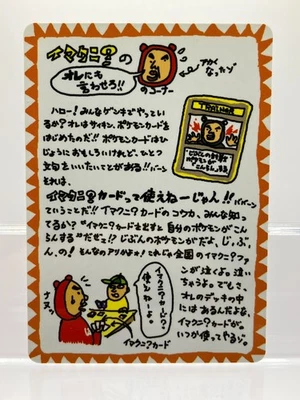 イマクニ?の
オレにも
言わせろ!!
のコーナー
アカく
なったゾ
ハロー!みんなゲンキでやってい
るか?オレはサイキン、ポケモンカードを
はじめたのだ!!ポケモンカードはひ
じょうにおもしろいけれど、ひとつ
文句をいいたいことがある!!バーン
それは、
イマクニ?カードって使えねーじゃん!!ババーン
ていうことだ!!イマクニ?カードのコウカ、みんな知っ
てるか?"イマクニ?カードを出すと自分のポケモンがこん
らんする"だぜ…!?じぶんのポケモンがだよ、じ、ぶ、
ん、の!そんなのアリかよォ!てゆーか全国のイマクニ?ファ
ンが泣くよ。泣い
ちゃうよ。でもさ、
オレのデッキの中
にはあるんだよな、
イマクニ?カードが。
いつか使ってやるゾ。
じぶんの
ポケモンが
こんらんする。
ナヌッ
イマクニ?カード?
使えねーよ
イマクニ?カード